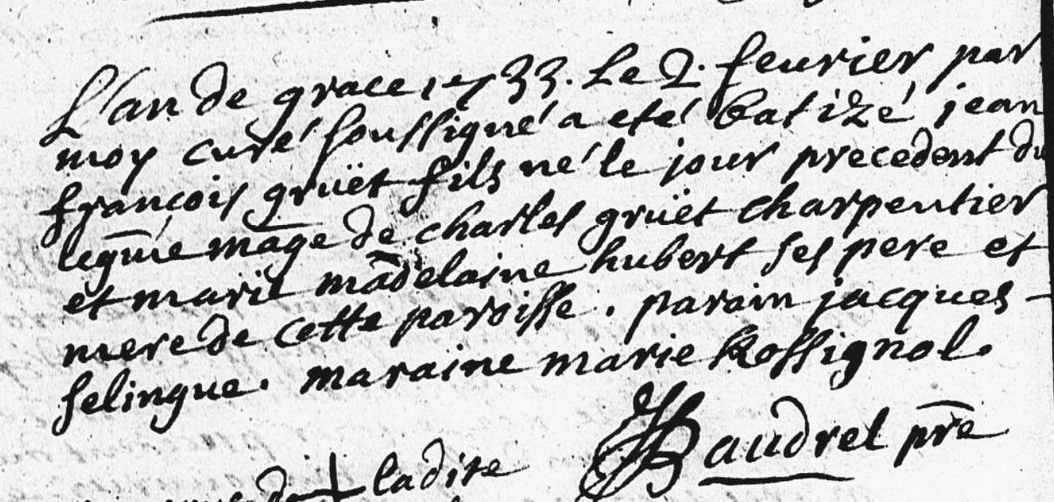 L'an de grace 1733. Le 2. feurier par
moy curé soussigné a eté batizé jean
françois grüet fils né le jour precedent du
legme mage de charles grüet charpentier
et marie madelaine hubert ses pere et
mere de cette paroisse. parain jacques
selingue. maraine marie Rossignol.
Baudrel pre
ladite